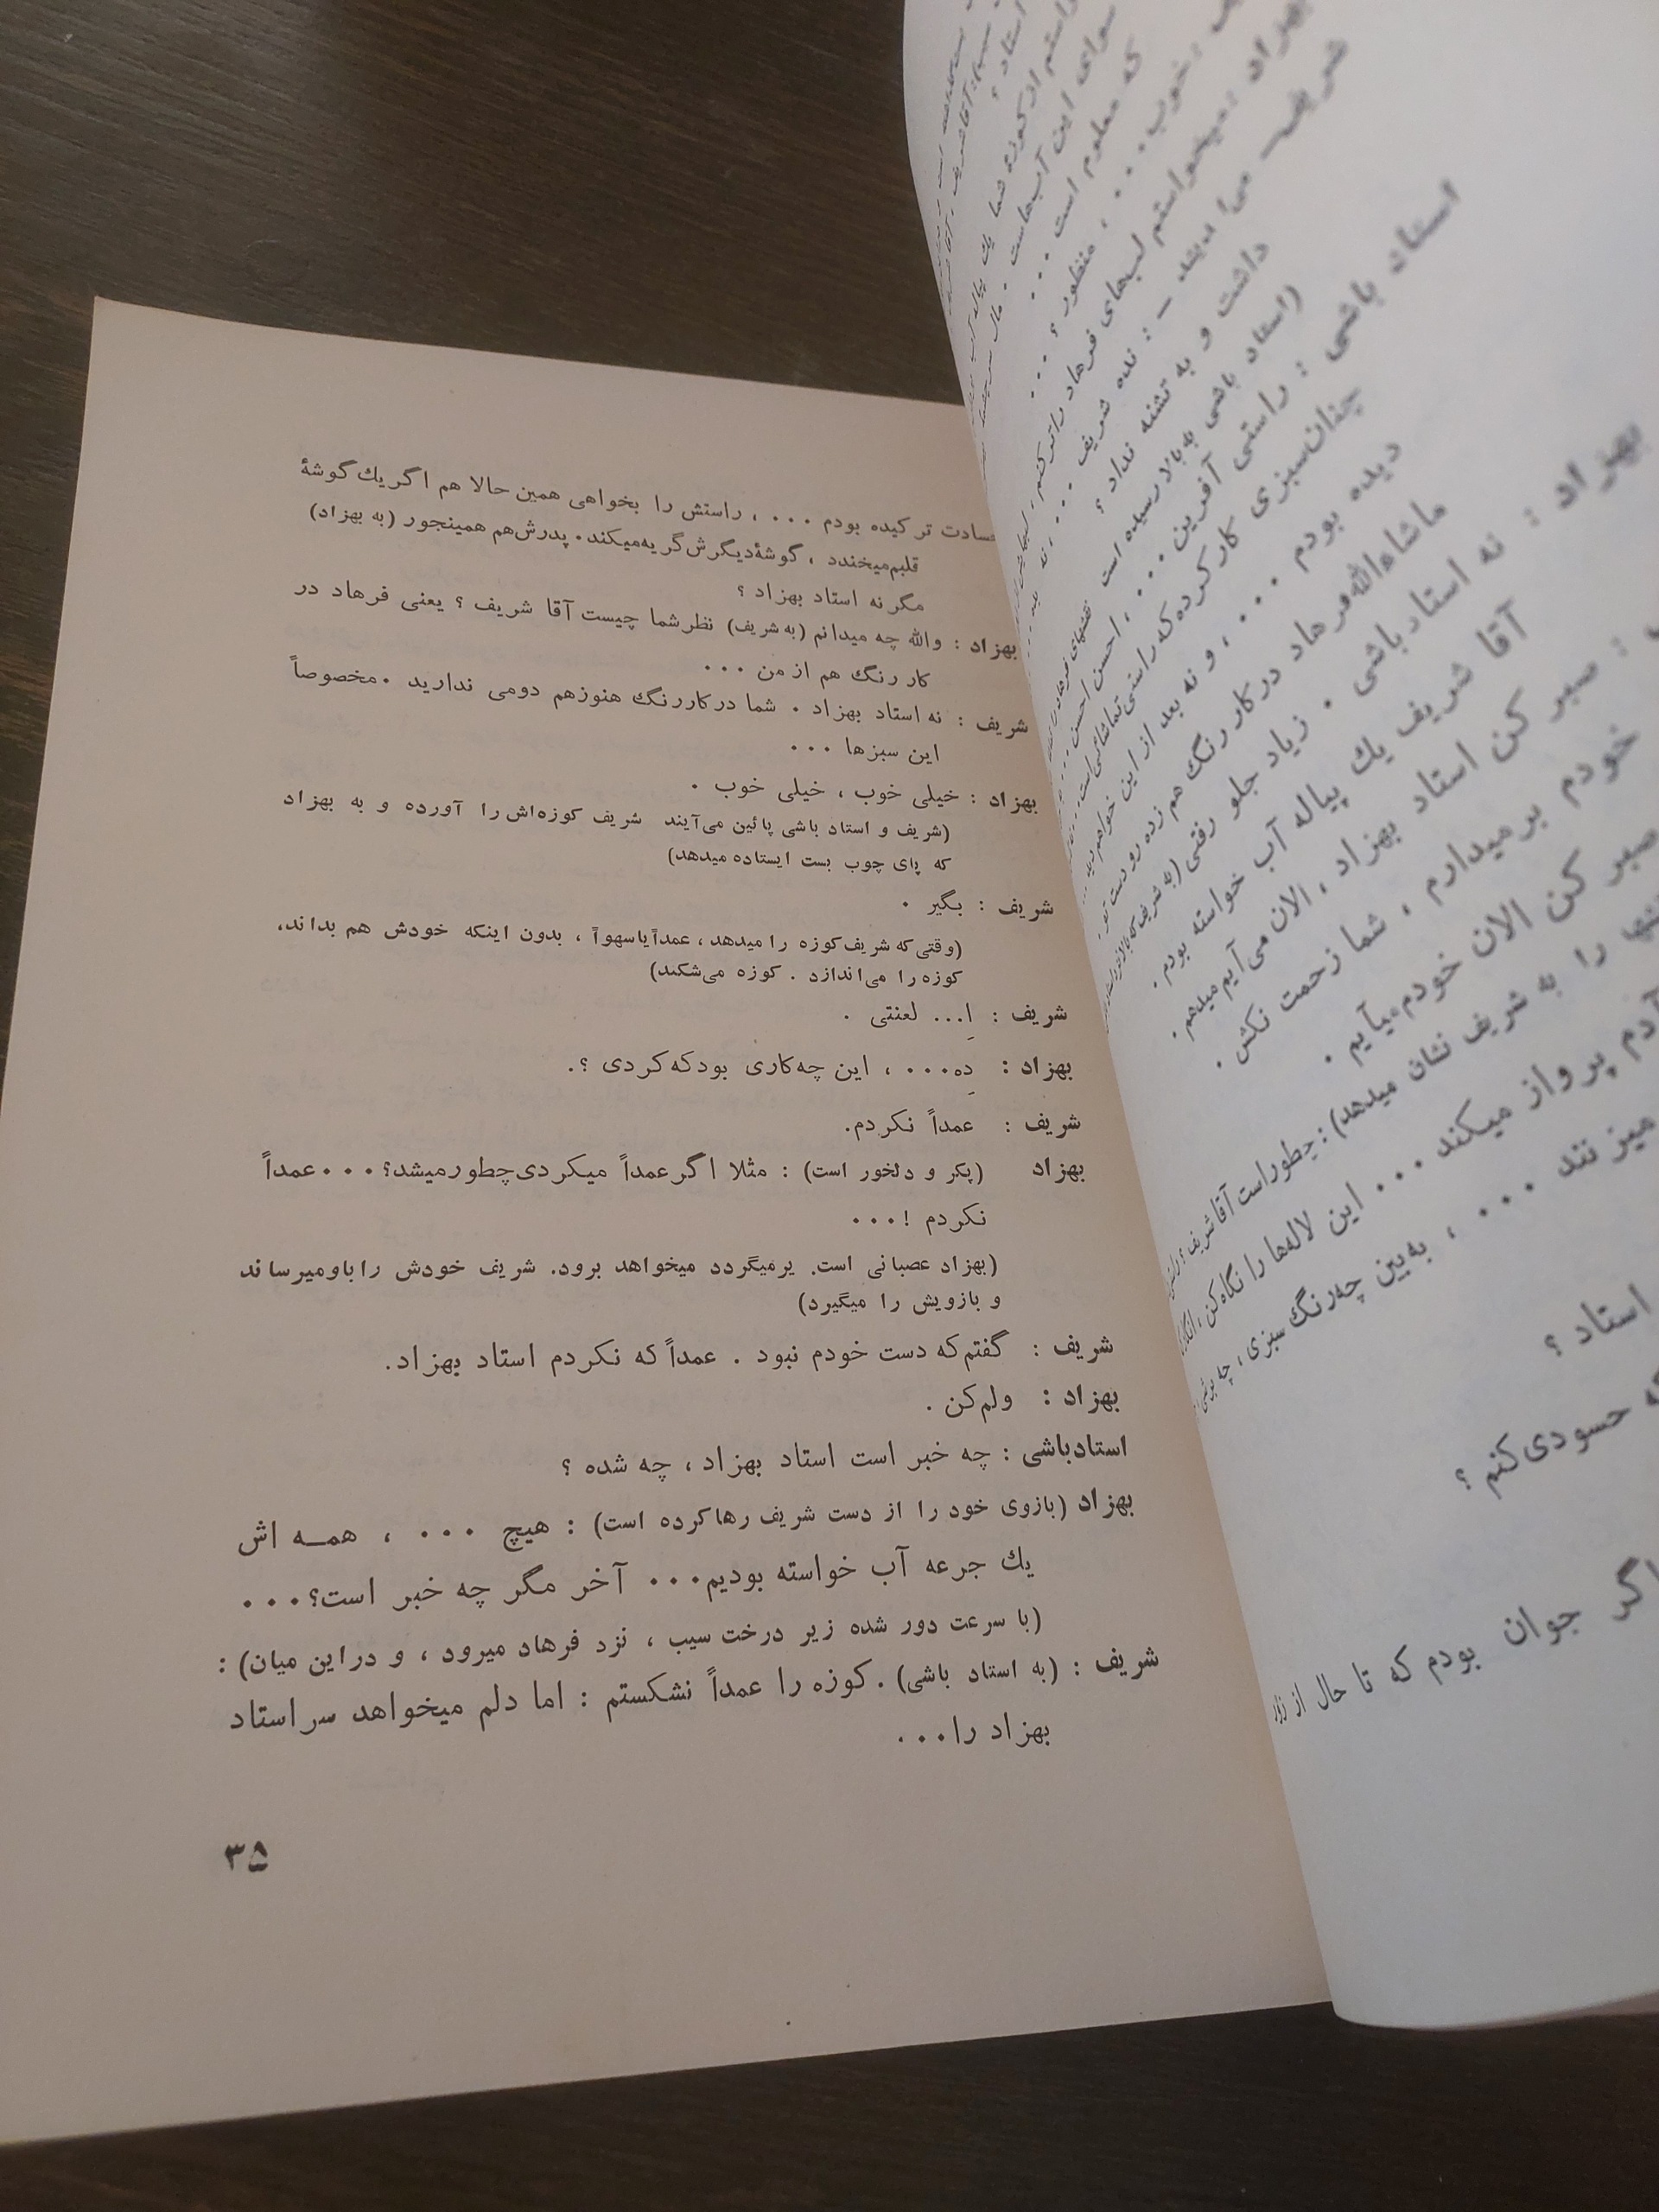 حسادت ترکیده بودم ... ، راستش را بخواهی همین حالا هم اگر یك گوشهٔ
قلبم میخندد ، گوشهٔ دیگرش گریه میکند. پدرش هم همینجور (به بهزاد)
مگر نه استاد بهزاد ؟
بهزاد : والله چه میدانم (به شریف) نظر شما چیست آقا شریف ؟ یعنی فرهاد در
کار رنگ هم از من ...
شریف : نه استاد بهزاد . شما در کار رنگ هنوز هم دومی ندارید . مخصوصاً
این سبزها ...
بهزاد : خیلی خوب ، خیلی خوب .
(شریف و استاد باشی پائین می‌آیند شریف کوزه‌اش را آورده و به بهزاد
که پای چوب بست ایستاده میدهد)
شریف : بگیر .
(وقتی که شریف کوزه را میدهد، عمداً یا سهواً ، بدون اینکه خودش هم بداند،
کوزه را می‌اندازد . کوزه می‌شکند)
شریف : اِ... لعنتی .
بهزاد : دِه... ، این چه کاری بود که کردی ؟.
شریف : عمداً نکردم.
بهزاد (پکر و دلخور است) : مثلا اگر عمداً میکردی چطور میشد؟ ... عمداً
نکردم !...
(بهزاد عصبانی است. یرمیگردد میخواهد برود. شریف خودش را باو میرساند
و بازویش را میگیرد)
شریف : گفتم که دست خودم نبود . عمداً که نکردم استاد بهزاد.
بهزاد : ولم کن .
استاد باشی : چه خبر است استاد بهزاد ، چه شده ؟
بهزاد (بازوی خود را از دست شریف رها کرده است) : هیچ ... ، همــه اش
یك جرعه آب خواسته بودیم... آخر مگر چه خبر است؟...
(با سرعت دور شده زیر درخت سیب ، نزد فرهاد میرود ، و در این میان) :
شریف : (به استاد باشی) . کوزه را عمداً نشکستم : اما دلم میخواهد سر استاد
بهزاد را...
۳۵
خوب... ، منظور ؟ ...
بهزاد : میخواستم لب‌های فرهاد را تر کنم
شریف
داشت و به تشنه نداد ؟
(استاد باشی به بالا رسیده است
استاد باشی : راستی آفرین ... ، احسن احسن ...
چنان سبزی کار کرده که راستی تماشائی است
دیده بودم ... ، و نه بعد از این خواهم دید
ماشاءالله فرهاد در کار رنگ هم زده رو دست تو.
بهزاد : نه استاد باشی . زیاد جلو رفتی (به شریف
آقا شریف یك پیاله آب خواسته بودم.
: صبر کن استاد بهزاد ، الان می‌آیم میدهم.
خودم برمیدارم ، شما زحمت نکش .
صبر کن الان خودم میآیم .
را به شریف نشان میدهد) : چطور است آقا شریف ؟
آدم پرواز میکند ... این لاله‌ها را نگاه کن ،
میزنند ... ، به‌بین چه رنگ سبزی ، چه
استاد ؟
حسودی کنم ؟
اگر جوان بودم که تا حال از زور